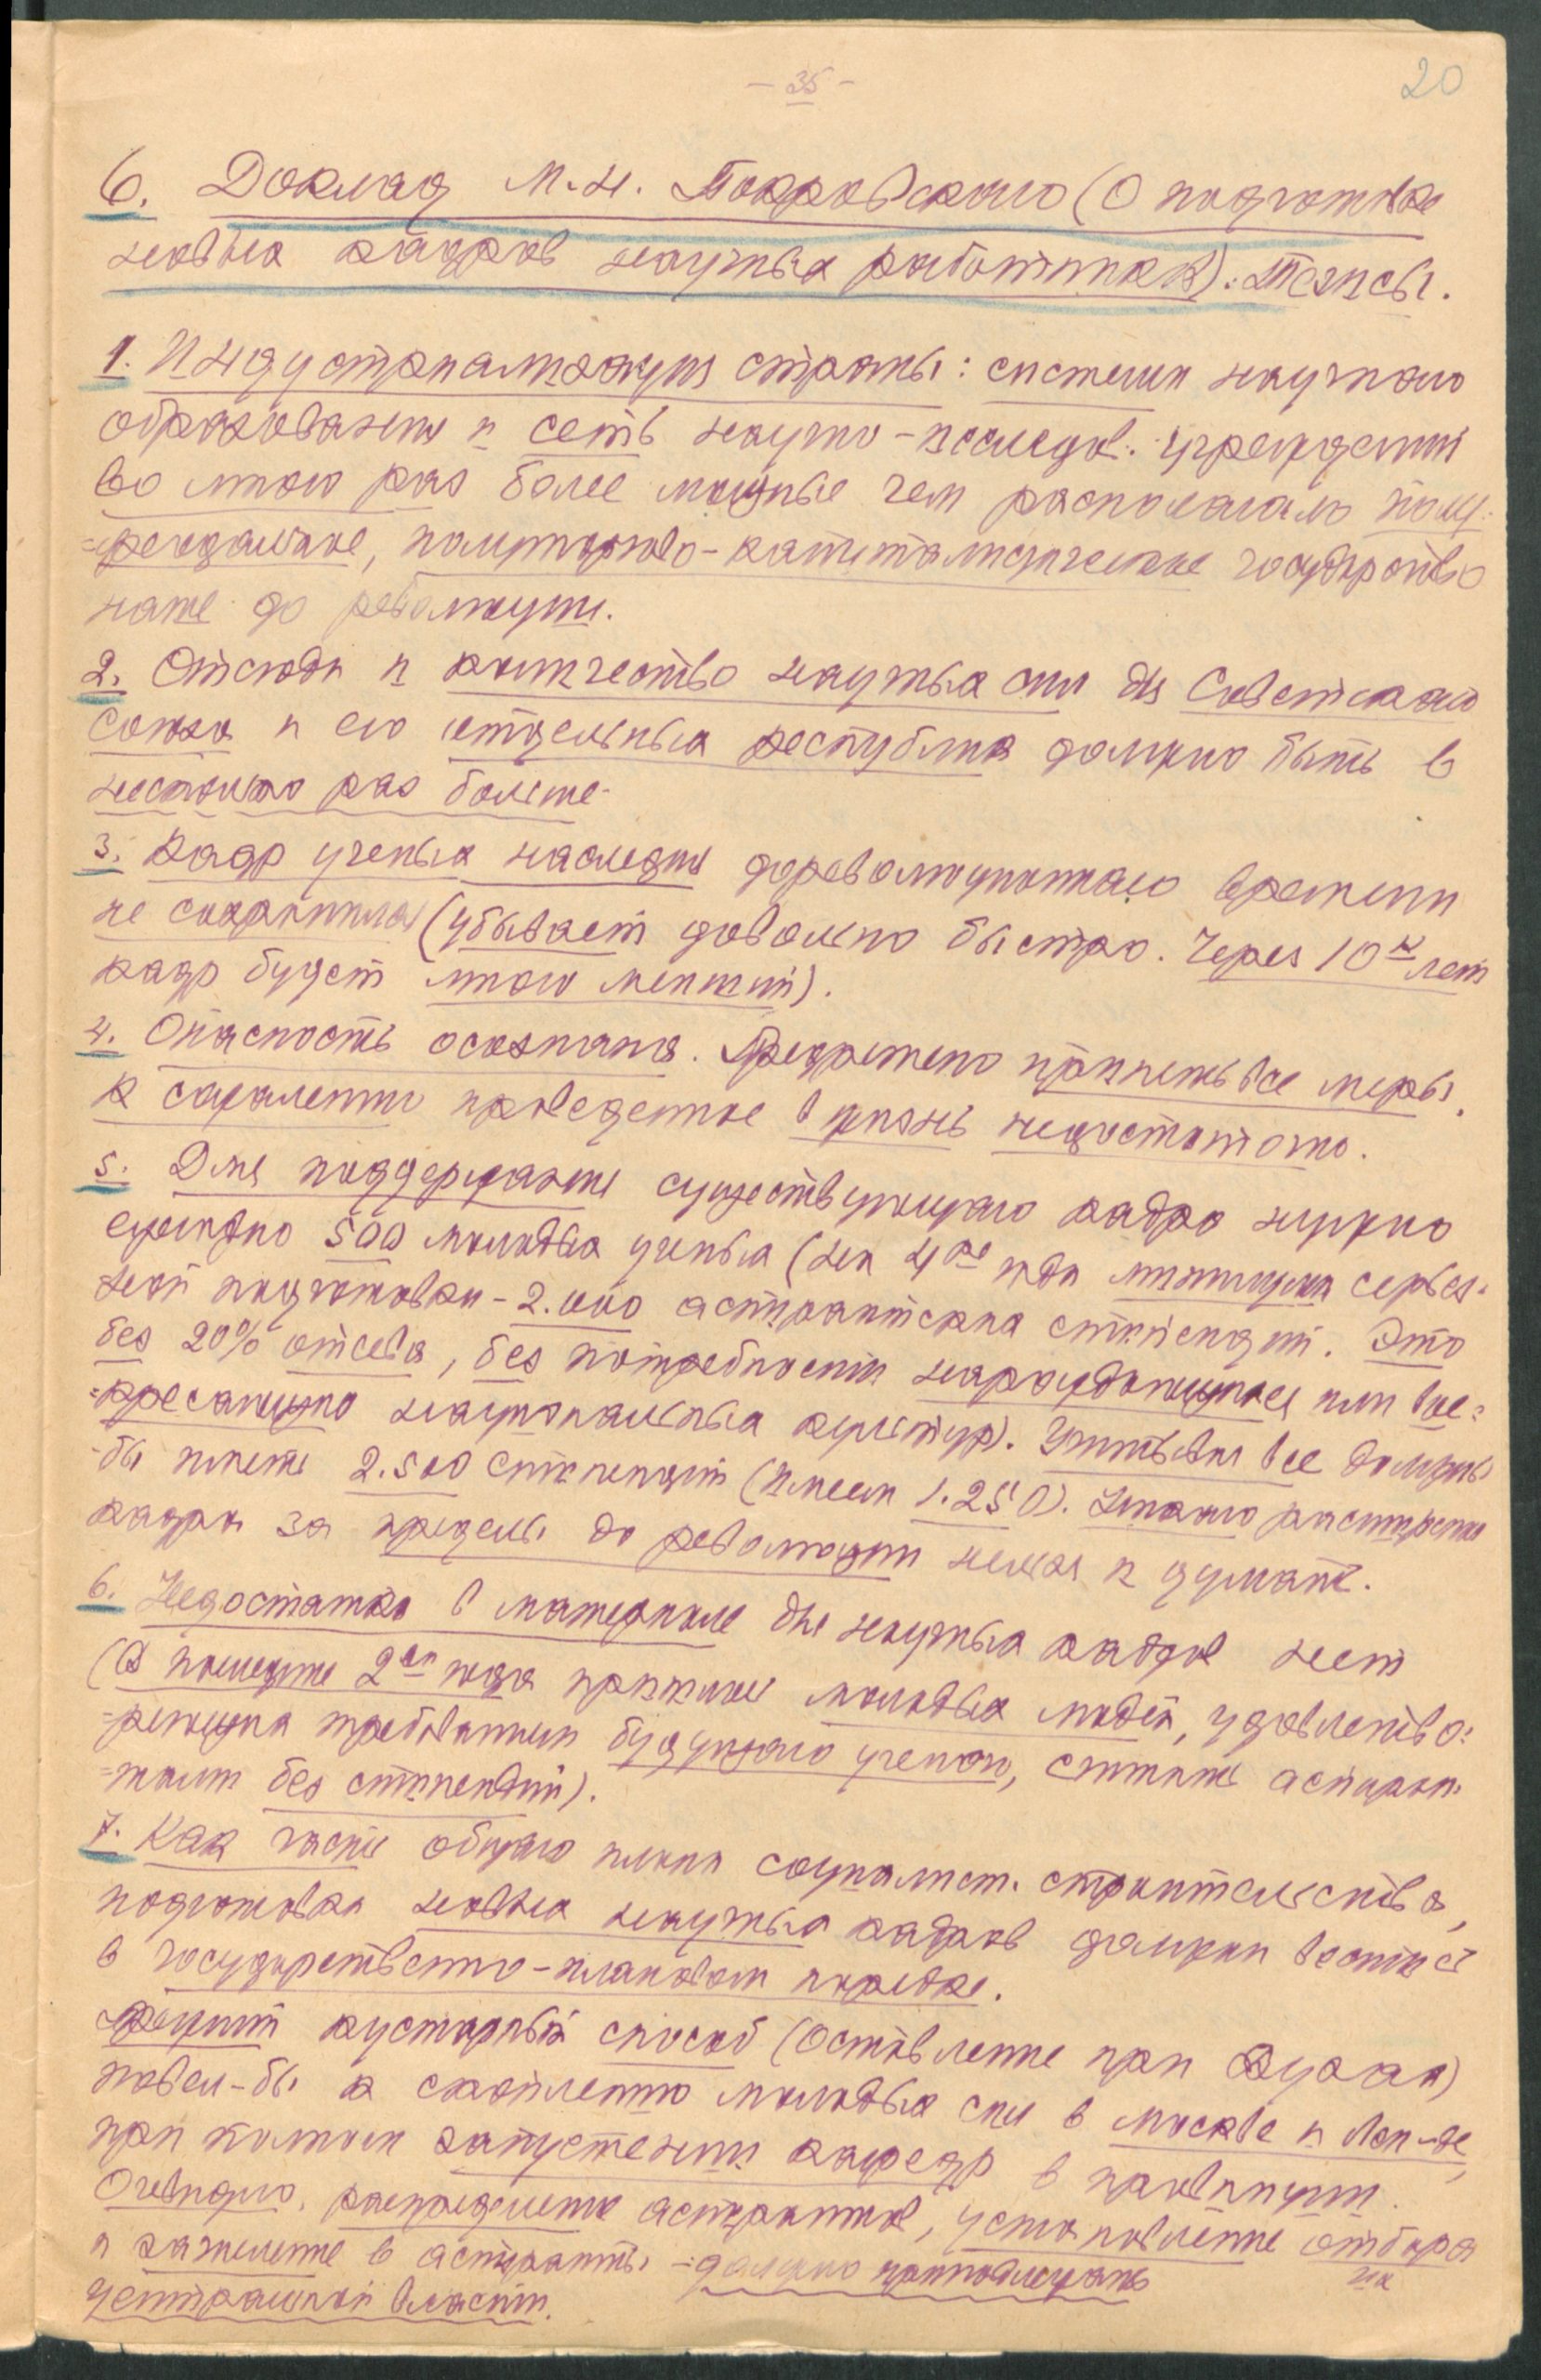 - 35 -
20
6. Доклад М.Н. Покровского (О подготовке
новых кадров научных работников): Тезисы.
1. Индустриализация страны: система научного
образования и сеть научно-исследов. учреждений
во много раз более мощные чем располагало полу-
=феодальное, полуторгово-капиталистическое государство
наше до революции.
2. Отсюда и количество научных сил для Советского
Союза и его отдельных республик должно быть в
несколько раз больше.
3. Кадр ученых наследия дореволюционного времени
не сохранился (убывает довольно быстро. Через 10 лет
кадр будет много меньший).
4. Опасность осознана. Предрешено принять все меры.
К сожалению проведенное в жизнь недостаточно.
5. Для поддержания существующего кадра нужно
ежегодно 500 молодых ученых (на 4 года минимум серьез-
ной подготовки - 2.000 аспирантских стипендий. Это
без 20% отсева, без потребности нарождающихся или вос-
=кресающих национальных культур). Учитывая все должны
бы иметь 2.500 стипендий (имеем 1.250). Иначе расширения
кадра за пределы до революции нельзя и думать.
6. Недостатка в материале для научных кадров нет
(В последние 2 года пришлось молодых людей, удовлетво-
=ряющих требованиям будущего ученого, считать аспиран-
=тами без стипендий).
7. Как часть общего плана социалист. строительства,
подготовка новых научных кадров должна вестись
в государственно-плановом порядке.
кустарный способ (оставление при Вузах)
повел-бы к скоплению молодых сил в Москве и Лен-де,
при полном запустении кафедр в провинции.
Очевидно, распределение аспирантов, установление отбора
их
и зачисление в аспиранты - должно принадлежать
центральной власти.